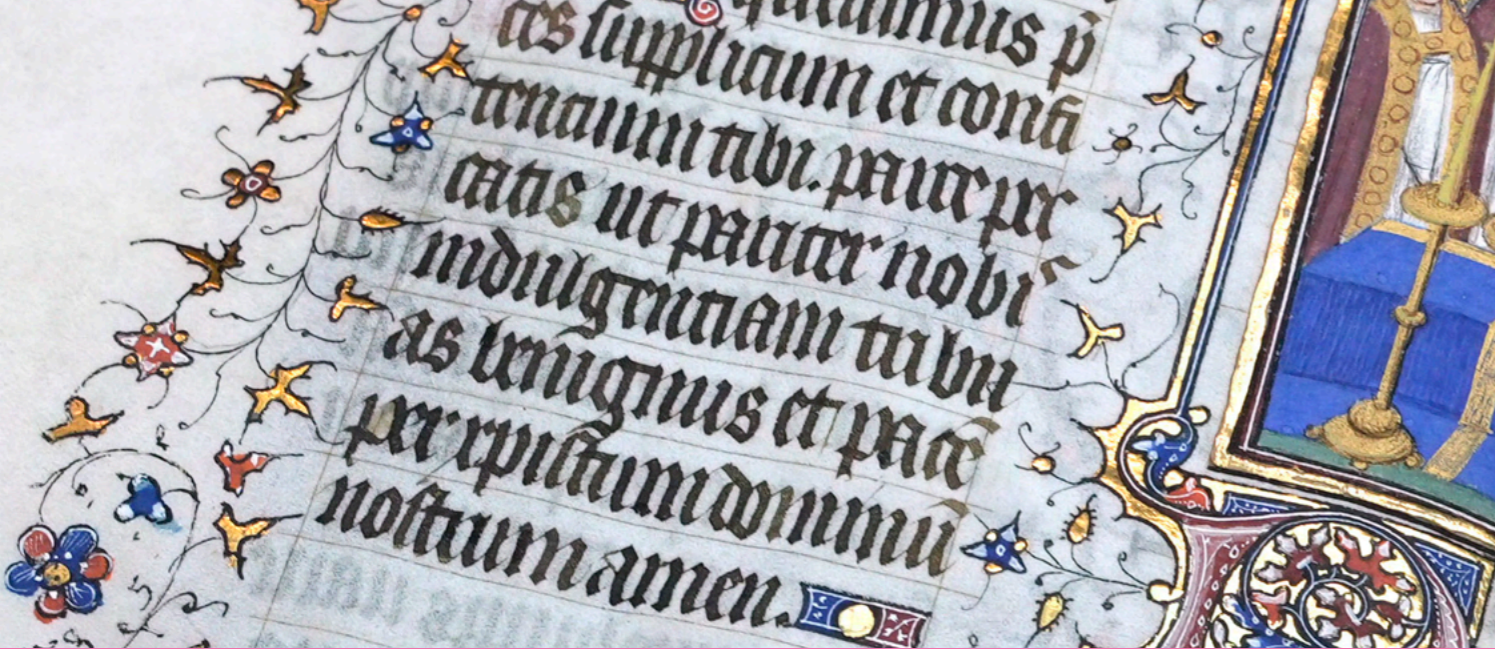 p̄
ces supplicium et confi
tencium tibi. parce pec
catis ut pariter nobis
indulgentiam tribu
as benignus et pacē
per xpistum dominū
nostrum amen.